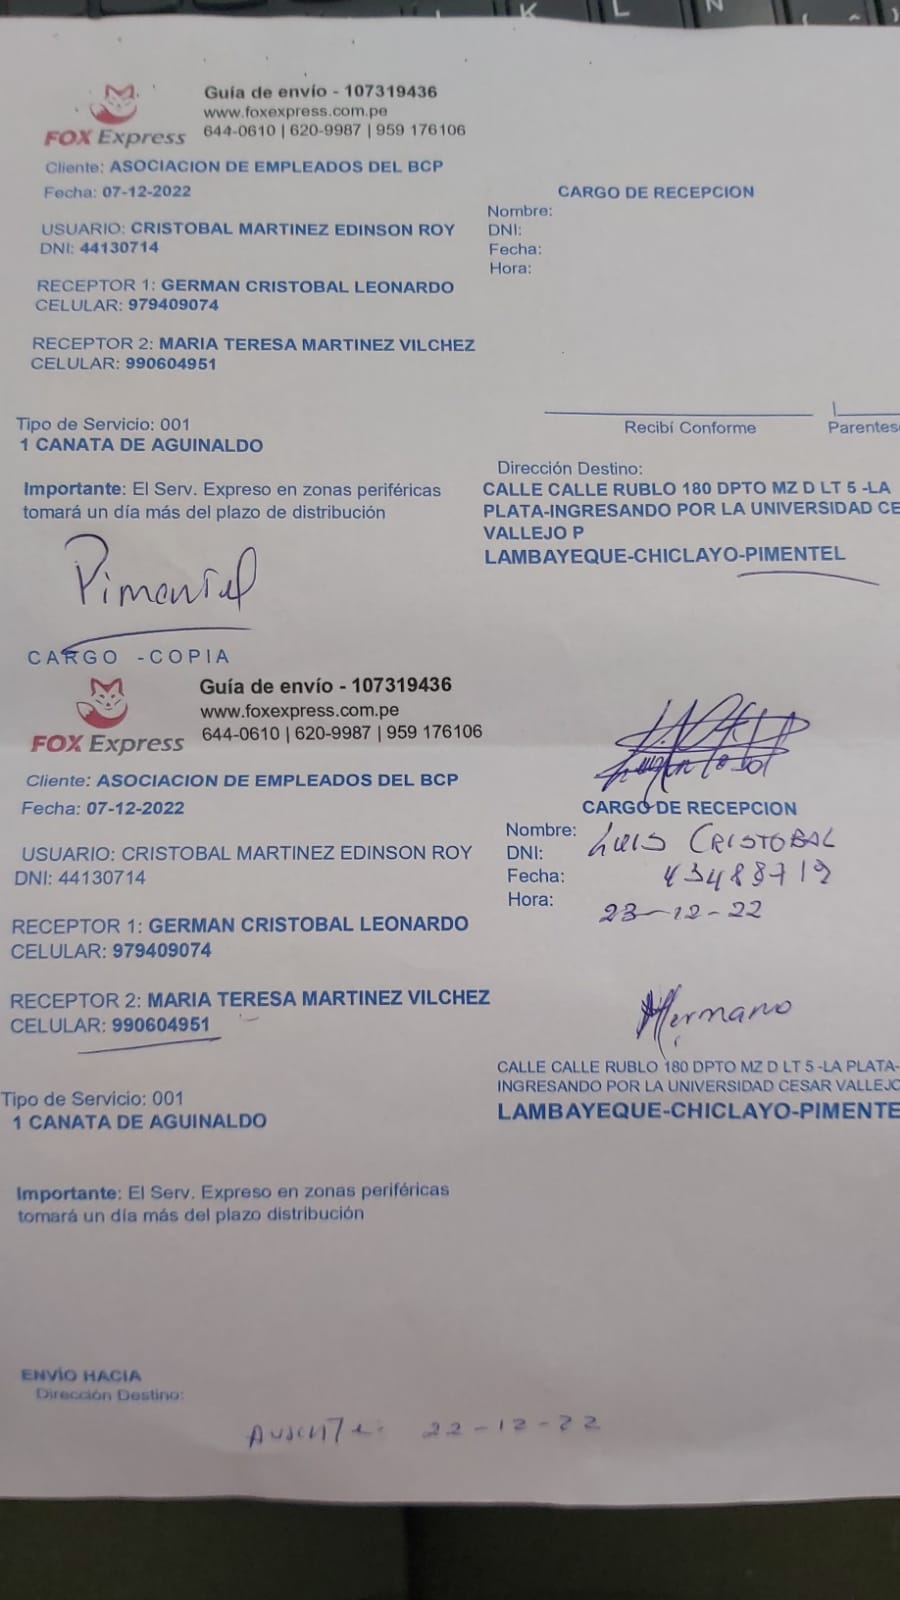 K L N
FOX Express
Guía de envío - 107319436
www.foxexpress.com.pe
644-0610 | 620-9987 | 959 176106
Cliente: ASOCIACION DE EMPLEADOS DEL BCP
Fecha: 07-12-2022
CARGO DE RECEPCION
Nombre:
DNI:
Fecha:
Hora:
USUARIO: CRISTOBAL MARTINEZ EDINSON ROY
DNI: 44130714
RECEPTOR 1: GERMAN CRISTOBAL LEONARDO
CELULAR: 979409074
RECEPTOR 2: MARIA TERESA MARTINEZ VILCHEZ
CELULAR: 990604951
Recibí Conforme
Parentes
Tipo de Servicio: 001
1 CANATA DE AGUINALDO
Importante: El Serv. Expreso en zonas periféricas
tomará un día más del plazo de distribución
Dirección Destino:
CALLE CALLE RUBLO 180 DPTO MZ D LT 5 -LA
PLATA-INGRESANDO POR LA UNIVERSIDAD CE
VALLEJO P
LAMBAYEQUE-CHICLAYO-PIMENTEL
Pimentel
CARGO -COPIA
FOX Express
Guía de envío - 107319436
www.foxexpress.com.pe
644-0610 | 620-9987 | 959 176106
Cliente: ASOCIACION DE EMPLEADOS DEL BCP
Fecha: 07-12-2022
CARGO DE RECEPCION
Nombre: Luis CRISTOBAL
DNI: 43488719
Fecha: 23-12-22
Hora:
USUARIO: CRISTOBAL MARTINEZ EDINSON ROY
DNI: 44130714
RECEPTOR 1: GERMAN CRISTOBAL LEONARDO
CELULAR: 979409074
RECEPTOR 2: MARIA TERESA MARTINEZ VILCHEZ
CELULAR: 990604951
Hermano
Tipo de Servicio: 001
1 CANATA DE AGUINALDO
CALLE CALLE RUBLO 180 DPTO MZ D LT 5 -LA PLATA-
INGRESANDO POR LA UNIVERSIDAD CESAR VALLEJO
LAMBAYEQUE-CHICLAYO-PIMENTE
Importante: El Serv. Expreso en zonas periféricas
tomará un día más del plazo distribución
ENVÍO HACIA
Dirección Destino:
Ausente: 22-12-22